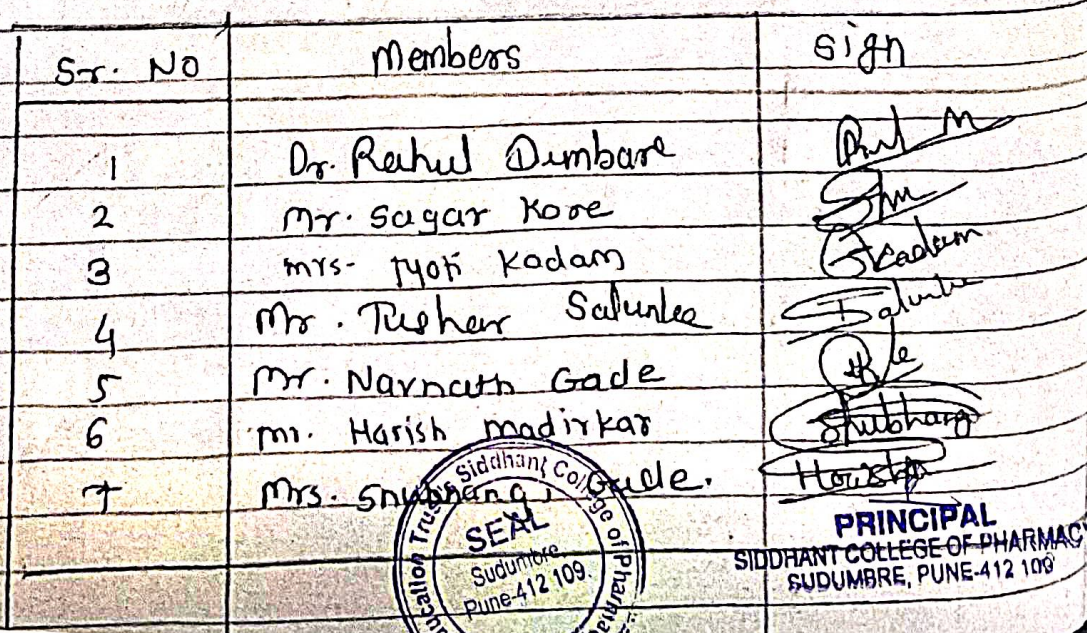 Sr. No Members Sign
1 Dr. Rahul Dumbare
2 Mr. Sagar Kore
3 Mrs- Jyoti Kadam Kadam
4 Mr. Tushar Salunke Salunke
5 Mr. Navnath Gade
6 Mr. Harish Madirkar Shubhangi
7 Mrs. Shubhangi Gade. Harish
PRINCIPAL
SIDDHANT COLLEGE OF PHARMACY
SUDUMBRE, PUNE-412 109
ucation Trust's Siddhant College of Pharmac
SEAL
Sudumbre,
Pune-412 109.